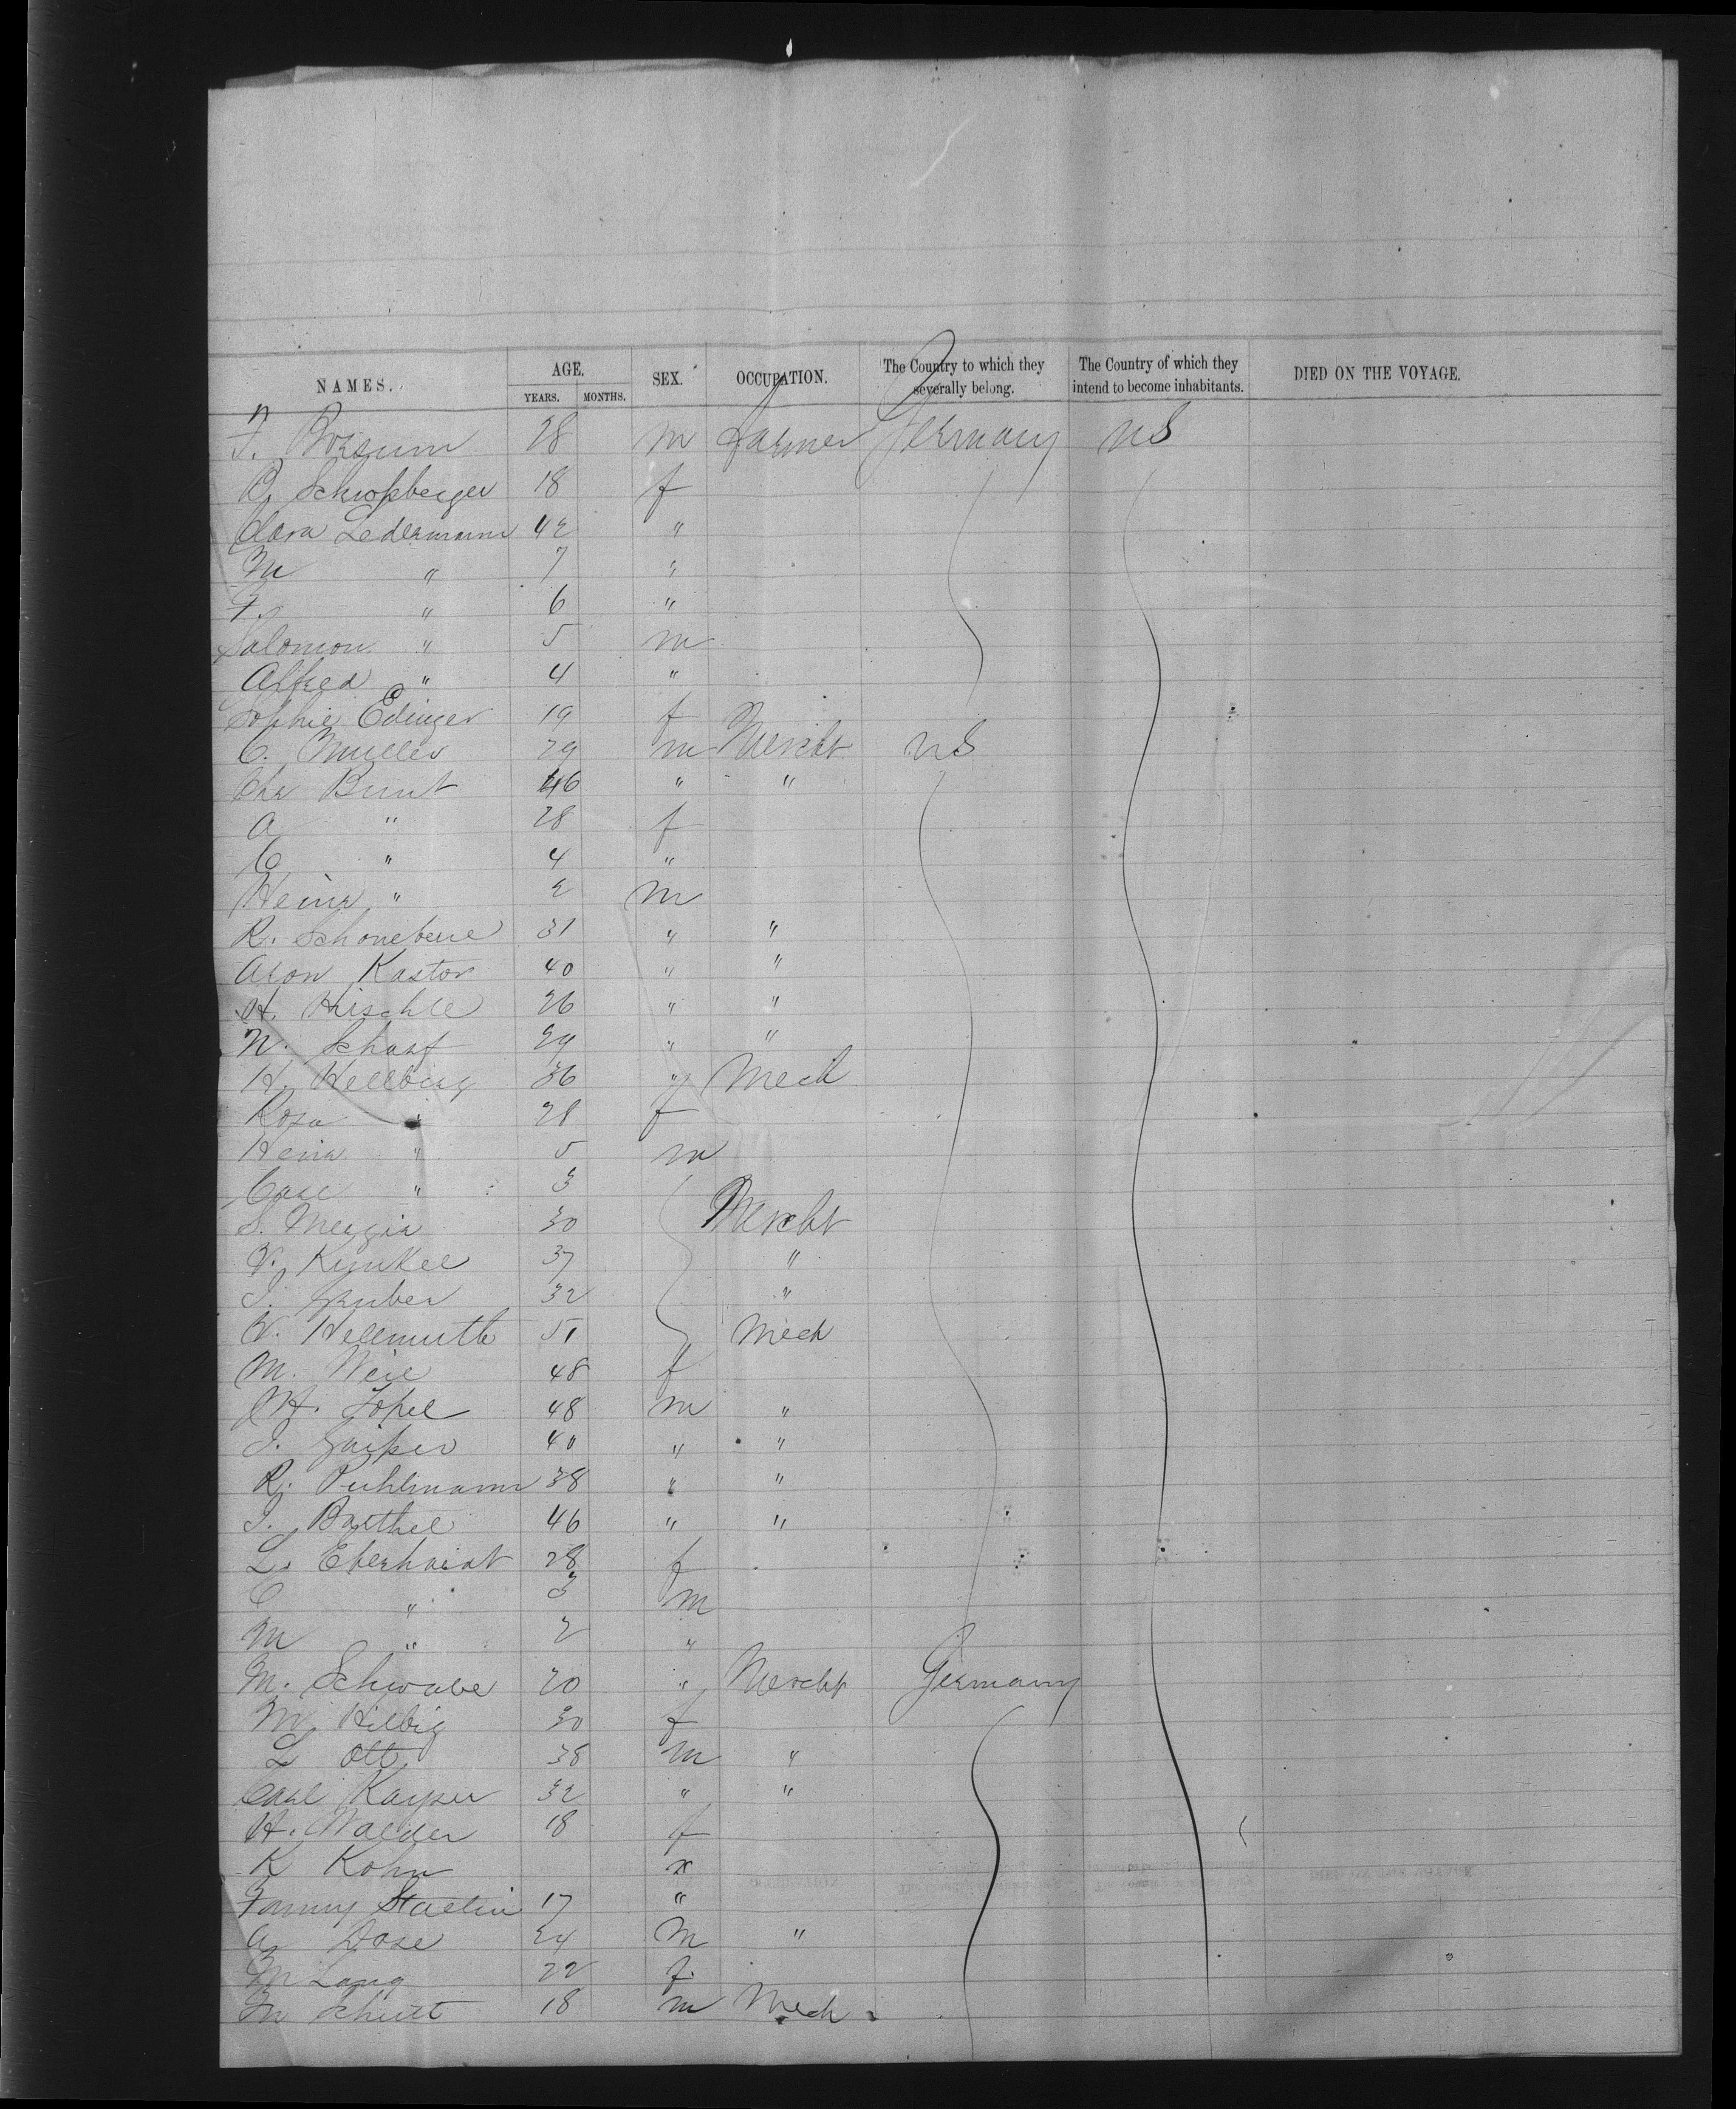 NAMES. AGE. YEARS. MONTHS. SEX. OCCUPATION. The Country to which they severally belong. The Country of which they intend to become inhabitants. DIED ON THE VOYAGE.
F. Borsum 28 m Farmer Germany US
B. Schropberger 18 f
Clara Ledermann 42 "
M " 7 "
F. " 6 "
Salomon " 5 m
Alfred " 4 "
Sophie Edinger 19 f
C. Muller 29 m Mercht US
Chr Bunt 46 " "
A " 28 f
C " 4 "
Heinr " 2 m
R. Schonebeue 31 " "
Aron Kastor 40 " "
H. Hirschle 26 " "
N. Scharf 29 " "
H. Hellberg 36 " Mech
Rosa " 28 f
Heinr " 5 m
Carl " 3
S. Mergia 30 Mercht
V. Kunkel 37 "
J. Gruber 32 "
V. Hellmuth 51 Mech
M. Weil 48 f
H. Topel 48 m "
J. 40 " "
R. Puhlmann 38 " "
J. Barthel 46 " "
L. Eberhardt 28 f
C " 3 m
M " 2 "
M. Schwabe 20 " Mercht Germany
M. Hilbig 30 f
L Ott 38 m "
Carl Kayser 32 " "
H. Walder 18 f
K Kohn x
Fanny Staelin 17 "
A. Dose 24 m "
M Lang 22 f.
M Schutt 18 m Mech